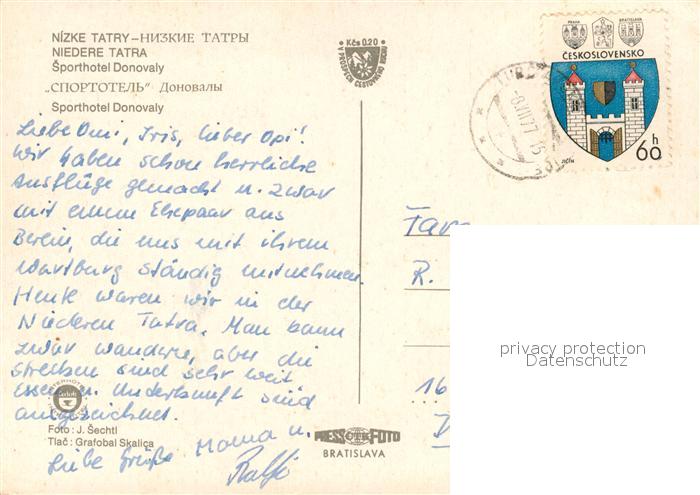 NÍZKE TATRY-НИЗКИЕ ТАТРЫ
NIEDERE TATRA
Športhotel Donovaly
„СПОРТОТЕЛЬ" Доновалы
Sporthotel Donovaly
Kčs 0.20
PRAHA
BRATISLAVA
ČESKOSLOVENSKO
60 h
JIČÍN
-8.VII.77-15
Liebe Omi, Iris, lieber Opi!
Wir haben schon herrliche
Ausflüge gemacht u. zwar
mit einem Ehepaar aus
Berlin, die uns mit ihrem
Wartburg ständig mitnehmen.
Heute waren wir in der
Niederen Tatra. Man kann
zwar wandern, aber die
Strecken sind sehr weit
Essen u. Unterkunft sind
ausgezeichnet.
Liebe Grüße Mama u.
Ralf
Fam
R.
16
Foto: J. Šechtl
Tlač: Grafobal Skalica
PRESSFOTO
BRATISLAVA
privacy protection
Datenschutz